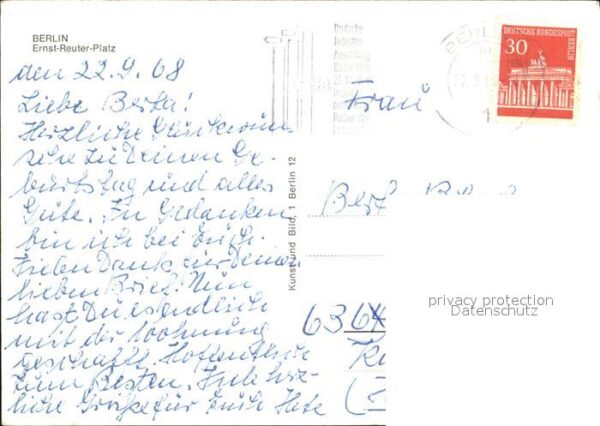 BERLIN
Ernst-Reuter-Platz
den 22.9.68
Liebe Berta!
Herzliche Glückwün
sche zu Deinen Ge-
burtstag und alles
Gute. In Gedanken
bin ich bei Euch.
Vielen Dank für Deinen
lieben Brief. Nun
hast Du es endlich
mit der Wohnung
geschafft. Hoffentlich
zum Besten. Viele herz-
liche Grüße für Euch
Kunst und Bild, 1 Berlin 12
Deutsche
Industrie-
Ausstellung
Berlin
BERLIN
DEUTSCHE BUNDESPOST
BERLIN
30
Frau
Bert
6364
privacy protection
Datenschutz